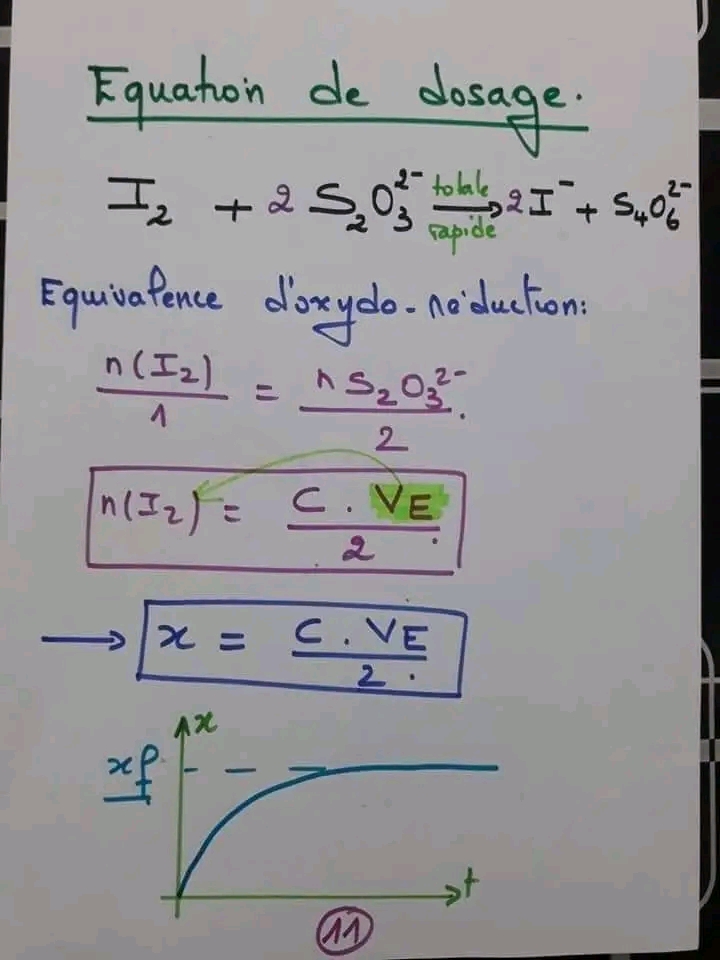 Equation de dosage.
I₂ + 2 S₂O₃²⁻ totale rapide → 2I⁻ + S₄O₆²⁻
Equivalence d'oxydo-réduction:
n(I₂)/1 = n S₂O₃²⁻/2
n(I₂) = C . VE/2
→ x = C . VE/2
x
xf
t
11